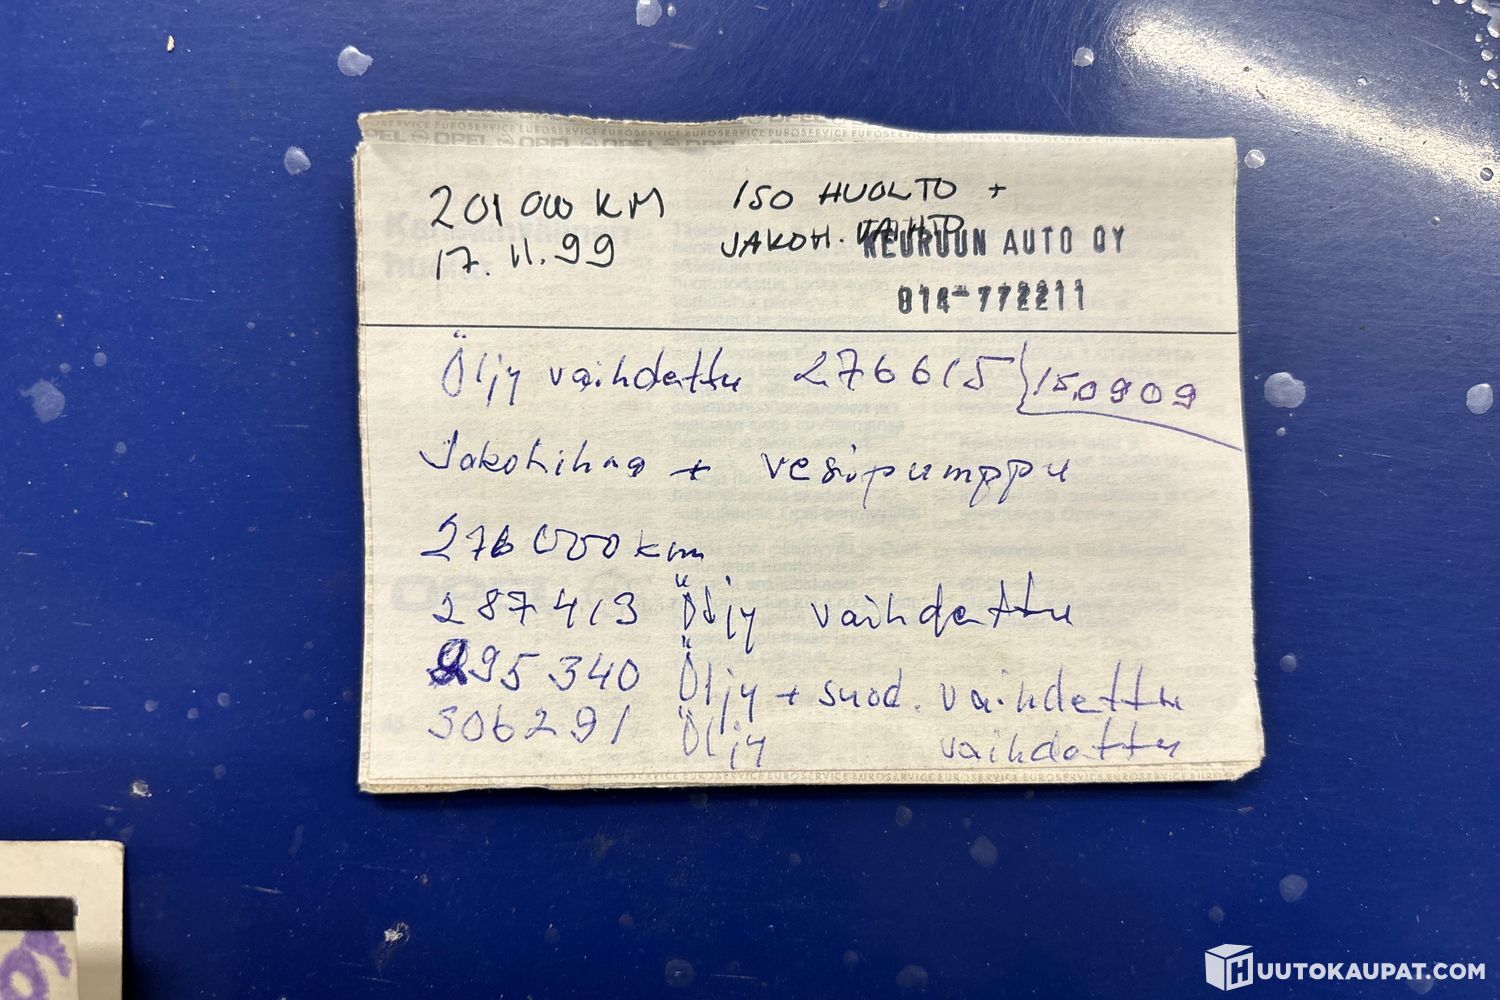 EUROSERVICE EUROSERVICE EUROSERVICE EUROSERVICE
OPEL OPEL OPEL OPEL
201 000 KM ISO HUOLTO +
17.11.99 JAKOH. VAIHTO
KEURUUN AUTO OY
014-772211
Öljy vaihdettu 276615 } 15.0909
Jakohihna + vesipumppu
276 000 km
287413 Öljy vaihdettu
295 340 Öljy + suod. vaihdettu
306291 Öljy vaihdettu
HUUTOKAUPAT.COM